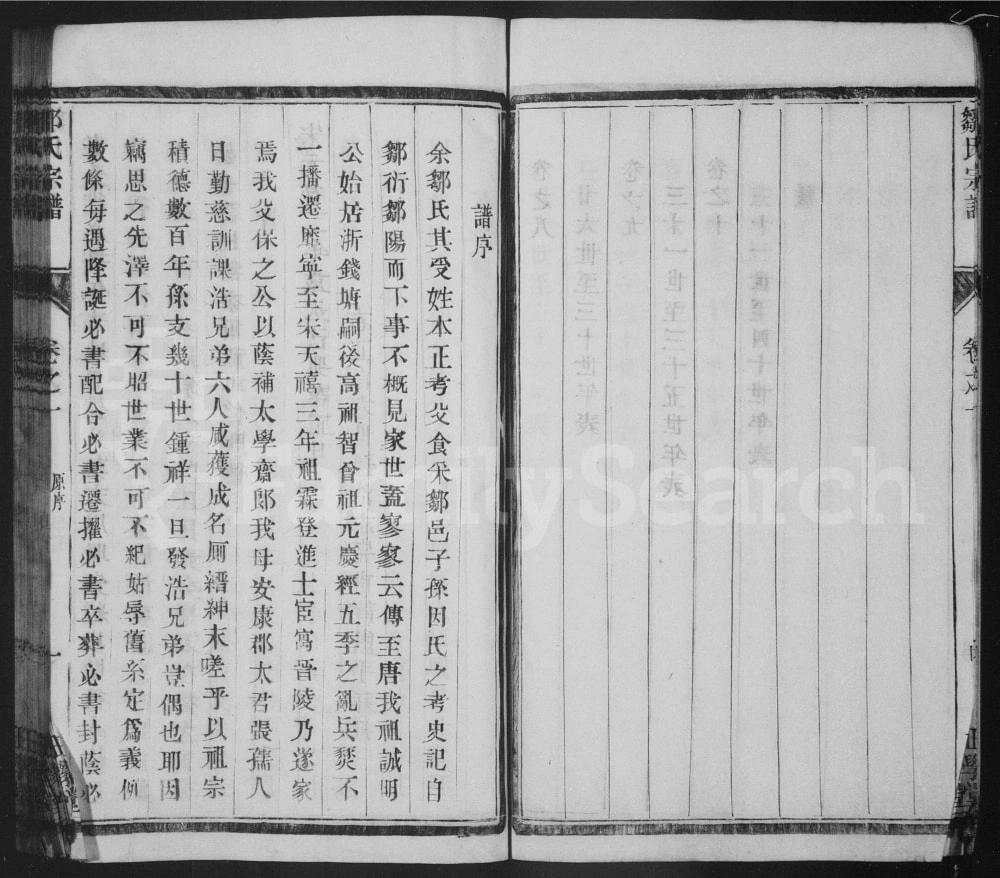 鄒氏宗譜
卷之一
譜序
余鄒氏其受姓本正考父食采鄒邑子孫因氏之考史記自
鄒衍鄒陽而下事不概見家世蓋寥寥云傳至唐我祖誠明
公始居浙錢塘嗣後高祖智曾祖元慶經五季之亂兵燹不
一播遷靡寧至宋天禧三年祖霖登進士宦寓晉陵乃遂家
焉我父保之公以蔭補太學齋郎我母安康郡太君張孺人
日勤慈訓課浩兄弟六人咸獲成名厕縉紳末嗟乎以祖宗
積德數百年孫支幾十世鍾祥一旦發浩兄弟豈偶也耶因
竊思之先澤不可不昭世業不可不紀姑辱舊系定爲義例
數條每遇降誕必書配合必書遷擢必書卒葬必書封蔭必
氏宗譜
卷之一
原序
一
FamilySearch